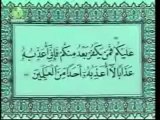 عَلَيْكُمْ فَمَن يَكْفُرْ بَعْدُ مِنكُمْ فَإِنِّي أُعَذِّبُهُ
عَذَابًا لَّا أُعَذِّبُهُ أَحَدًا مِّنَ الْعَالَمِينَ